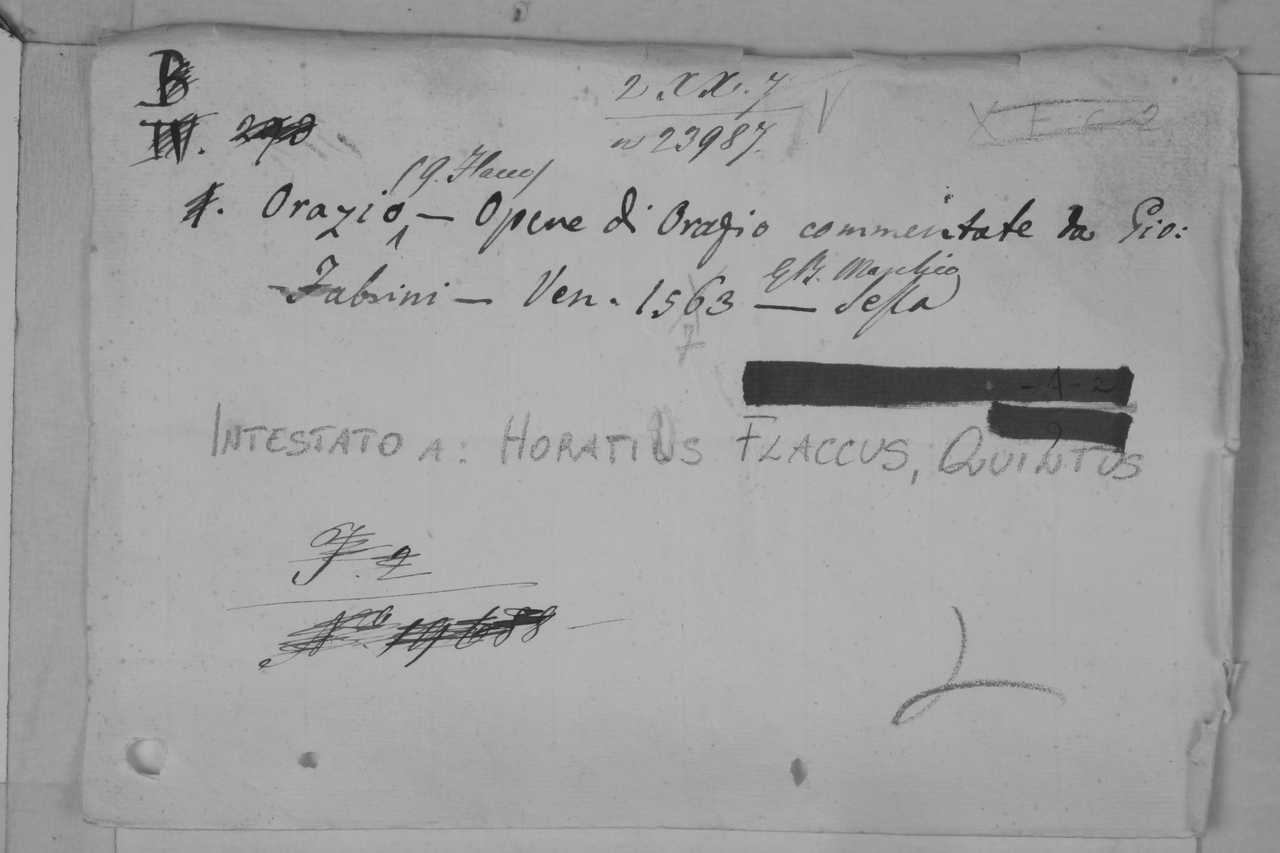 B
IV. 298
2 XX. 7
n 23987.
X F C 2
(Q. Flacco)
4. Orazio — Opere di Orazio commentate da Gio:
G B. Marchio
Fabrini — Ven. 1563 — Sessa
7
-A-2
INTESTATO A: HORATIUS FLACCUS, QUINTUS
F. 2
N.ro 19688
L